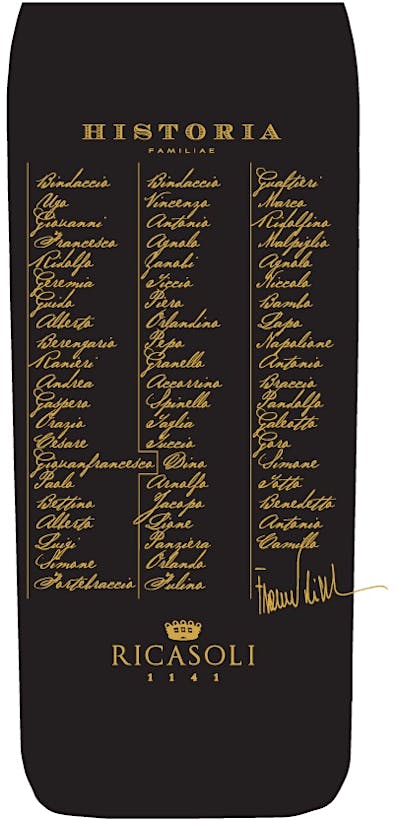 HISTORIA
FAMILIAE
Bindaccio
Ugo
Giovanni
Francesco
Ridolfo
Geremia
Guido
Alberto
Berengario
Ranieri
Andrea
Gaspero
Orazio
Cesare
Giovanfrancesco
Paolo
Bettino
Alberto
Luigi
Simone
Fortebraccio
Bindaccio
Vincenzo
Antonio
Agnolo
Zanobi
Ticcio
Piero
Orlandino
Pepo
Granello
Accorrino
Spinello
Taglia
Tuccio
Dino
Arnolfo
Jacopo
Lione
Panziera
Orlando
Julino
Gualtieri
Marco
Ridolfino
Malpiglio
Agnolo
Niccolo
Bambo
Lapo
Napolione
Antonio
Braccio
Pandolfo
Galeotto
Goro
Simone
Totto
Benedetto
Antonio
Camillo
RICASOLI
1141